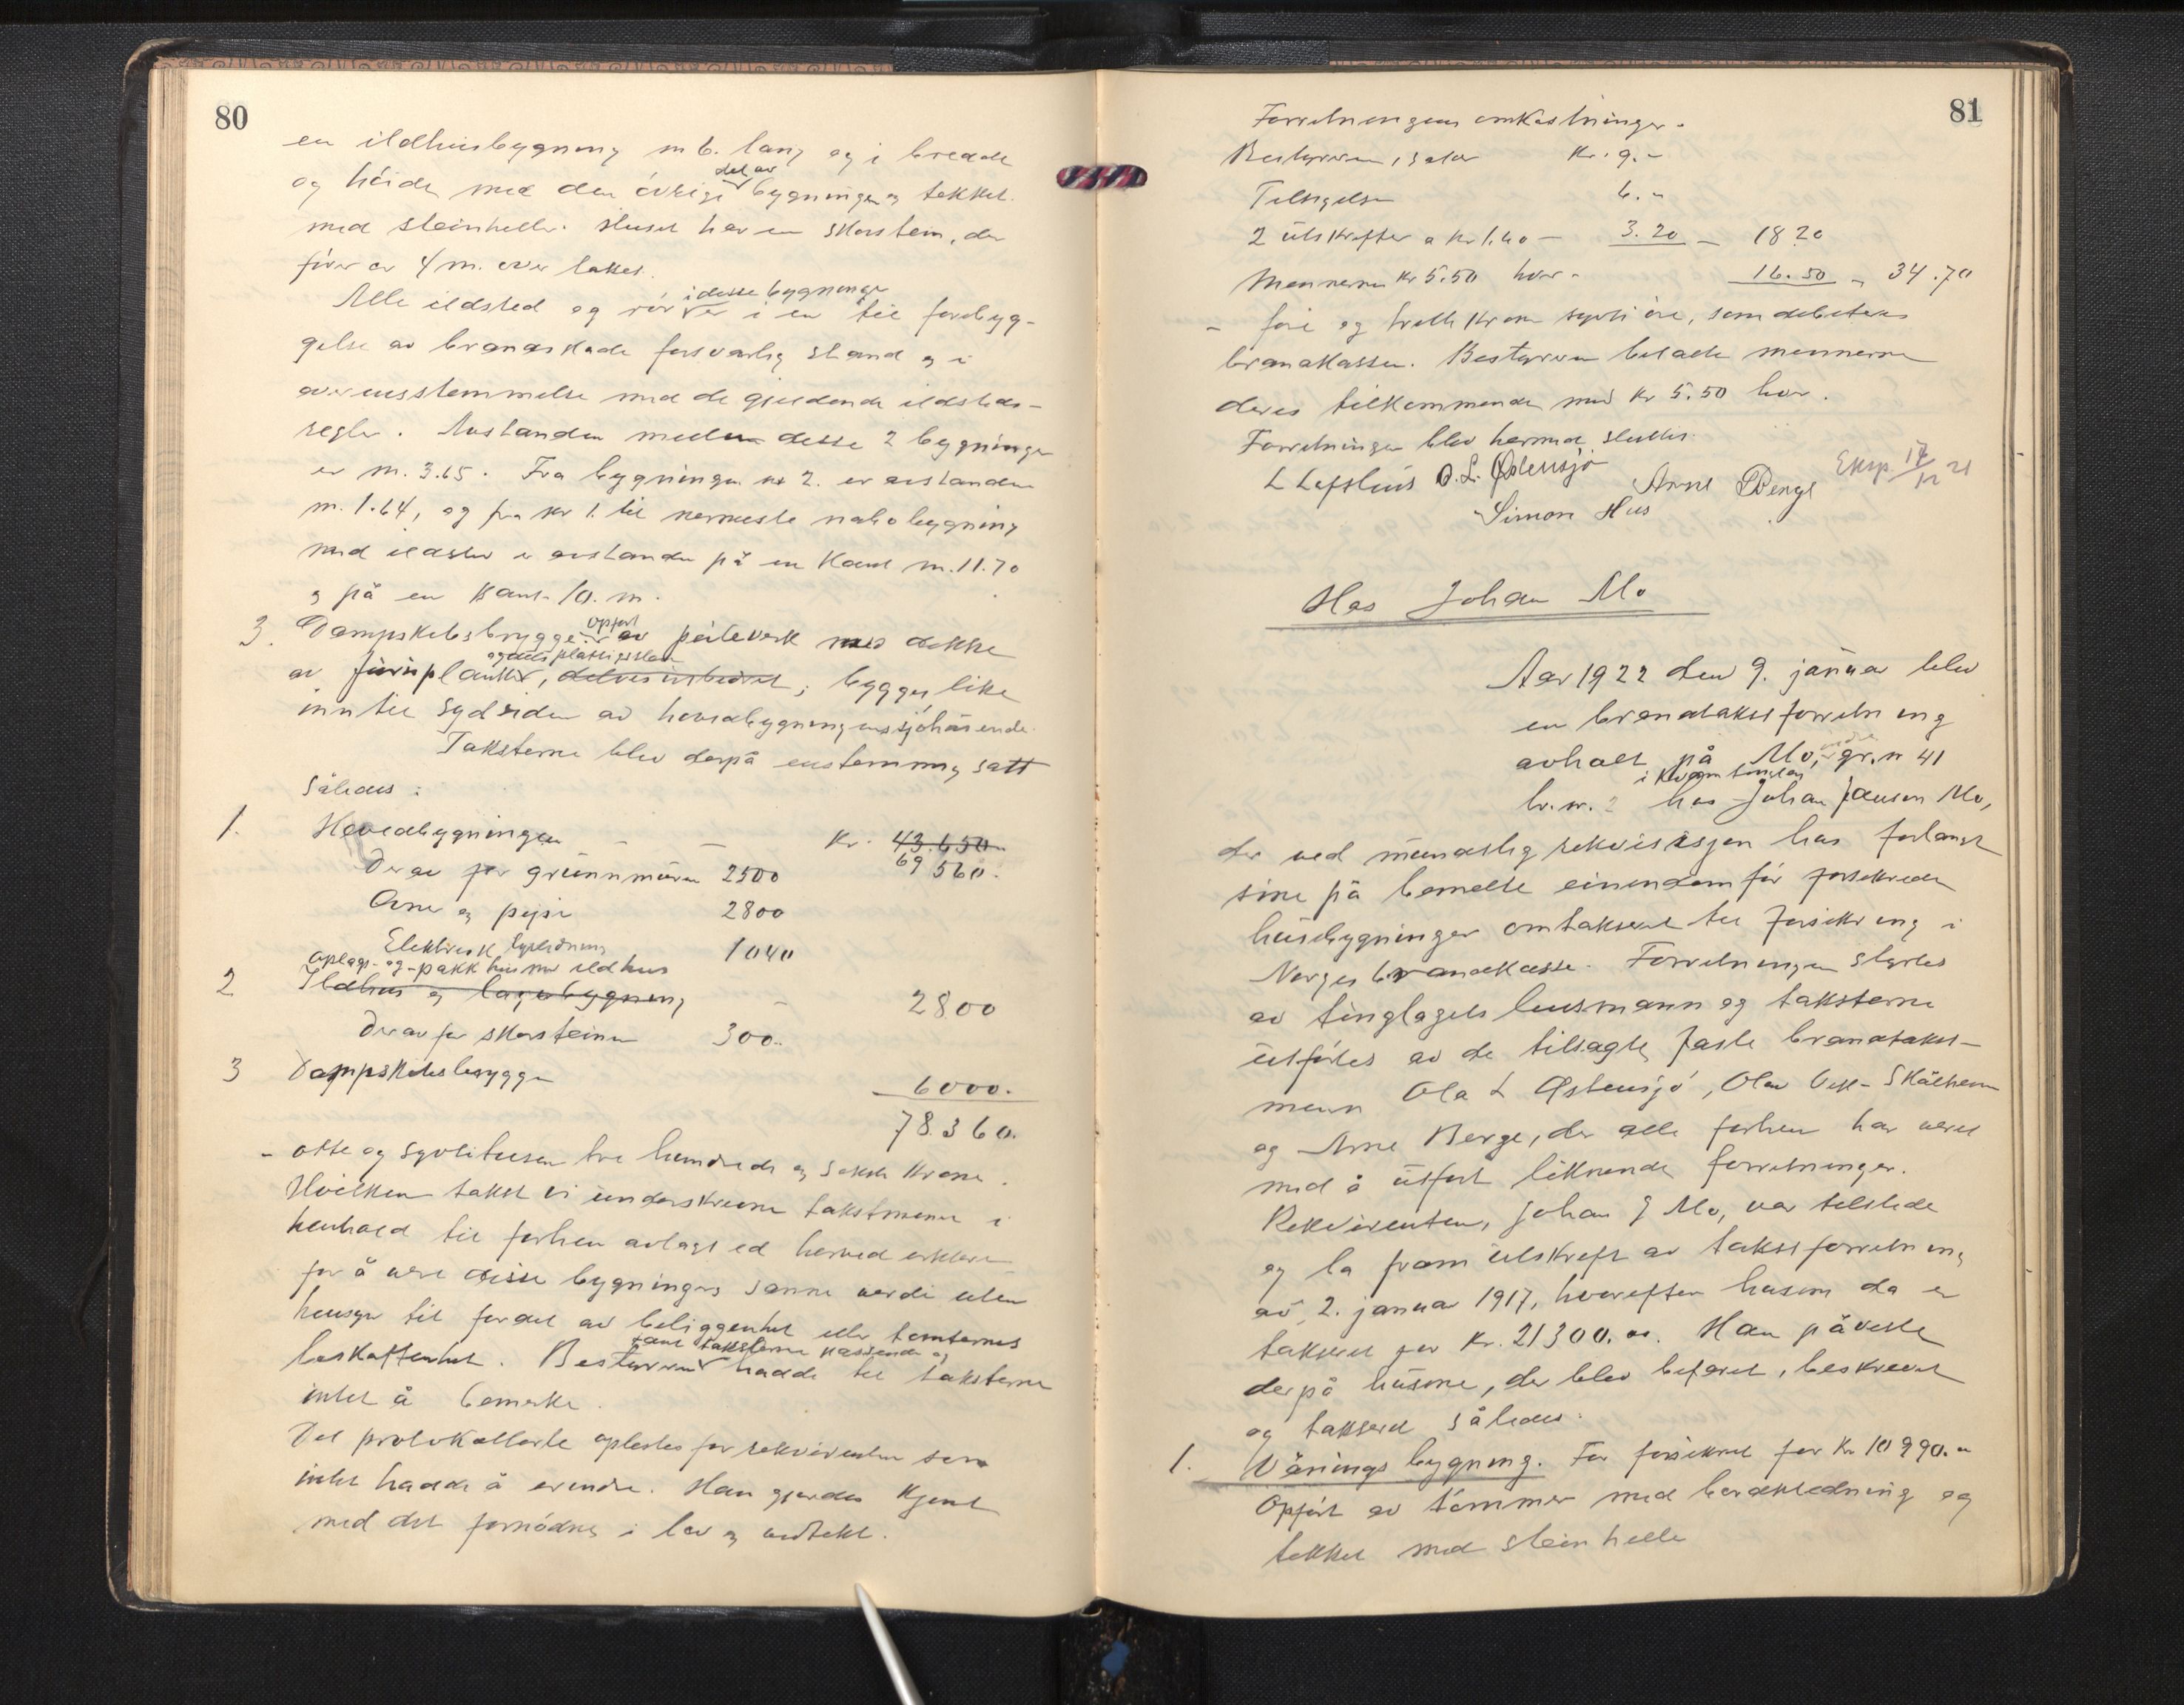 80
en ildhusbygning m 6. lang og i bredde
og høide med den øvrige del av bygningen og tekket
med steinheller. Huset har en skorstein, der
fører ca 4 m. over taket.
Alle ildsted og rør i desse bygninger er i en til forebyg-
gelse av brandskade forsvarlig stand og i
overensstemmelse med de gjeldende ildsteds-
regler. Avstanden mellem desse 2 bygninger
er m. 3.65. Fra bygningen nr 2. er avstanden
m. 1.64, og fra nr 1. til nermeste nabobygning
med ildsted er avstanden på en kant m. 11.70
og på en kant 10. m.
3. Dampskibsbrygge opført av peleverk med dekke
av furuplanker, delvis utbedret, bygget like
inn til sydsiden av hovedbygningens sjøhusende.
Taksterne blev derpå enstemmig satt
således:
1. Hovedbygningen - - Kr. 43.650.-
69 560.-
Derav for grunnmuren 2500
Ovne og peise 2800
Elektrisk lysledning 1040
oplags- og pakkhus med ildhus
2 Ildhus og lagerbygning - 2800
Derav for skorsteinen 300.-
3 Dampskibsbrygge 6000.-
78.360.
- otte og syvti tusen tre hundrede og seksti kroner.
Hvilken takst vi underskrevne takstmenn i
henhold til forhen avlagt ed herved erklære
for å være disse bygningers sanne verdi uten
hensyn til fordel av beliggenhet eller tomternes
beskaffenhet. Bestyreren fant taksterne passende og hadde til taksterne
intet å bemerke.
Det protokollerte oplestes for rekvirenten som
intet hadde å erindre. Han gjordes kjent
med det fornødne i lov og vedtekt.
81
Forretningens omkostninger.
Bestyreren, salær Kr. 9.-
Tilsigelse 6.-
2 utskrifter a kr 1.60 - 3.20 - 18 20
Mennerne kr 5.50 hver - 16.50 - 34.70
- fire og tretti kroner sytti øre, som debiteres
brandkassen. Bestyreren betalte mennerne
deres tilkommende med kr 5.50 hver.
Forretningen blev hermed sluttet.
L Lofthus O. L. Østensjø Arne Berge Eksp. 17/12 21
Simon Hus
Hos Johan Mo
Aar 1922 den 9. januar blev
en brandtakstforretning
avholt på Mo, nedre gr. nr 41
br. nr. 2 i Kvam tinglag hos Johan Jansen Mo,
der ved mundtlig rekvisisjon har forlangt
sine på bemelte eiendom før forsikrede
husbygninger omtaksert til forsikring i
Norges brandkasse. Forretningen styrtes
av tinglagets lensmann og taksterne
utførtes av de tilsagte, faste brandtakst-
menn Ola L Østensjø, Olav Skålheim
og Arne Berge, der alle forhen har været
med å utført liknende forretninger.
Rekvirenten, Johan J Mo, var tilstede
og la fram utskrift av takstforretning
av 2. januar 1917, hvorefter husene da er
taksert for kr. 21300.00. Han påviste
derpå husene, der blev befaret, beskrevet
og taksert således:
1. Våningsbygning. Før forsikret for kr 10 990.-
Opført av tømmer med bordkledning og
tekket med steinhelle